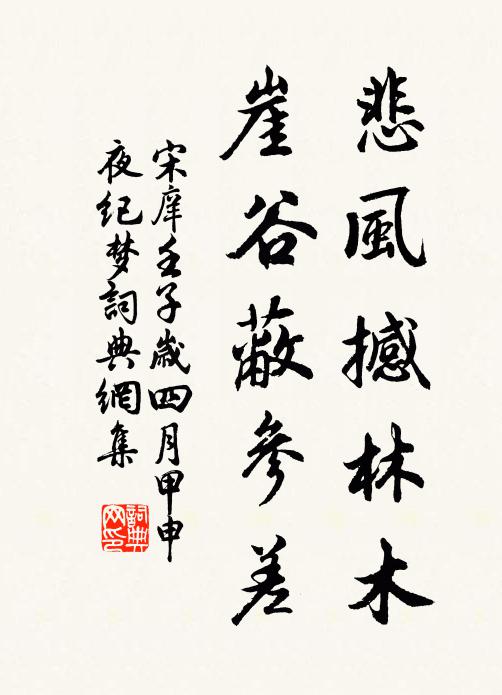 悲風撼林木
崖谷蔽參差
宋庠壬子歲四月甲申
夜纪梦詞典網集
詞典网印